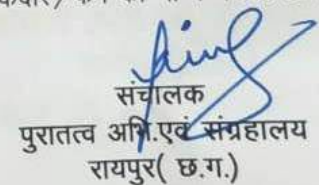 संचालक
पुरातत्व अभि.एवं संग्रहालय
रायपुर( छ.ग.)